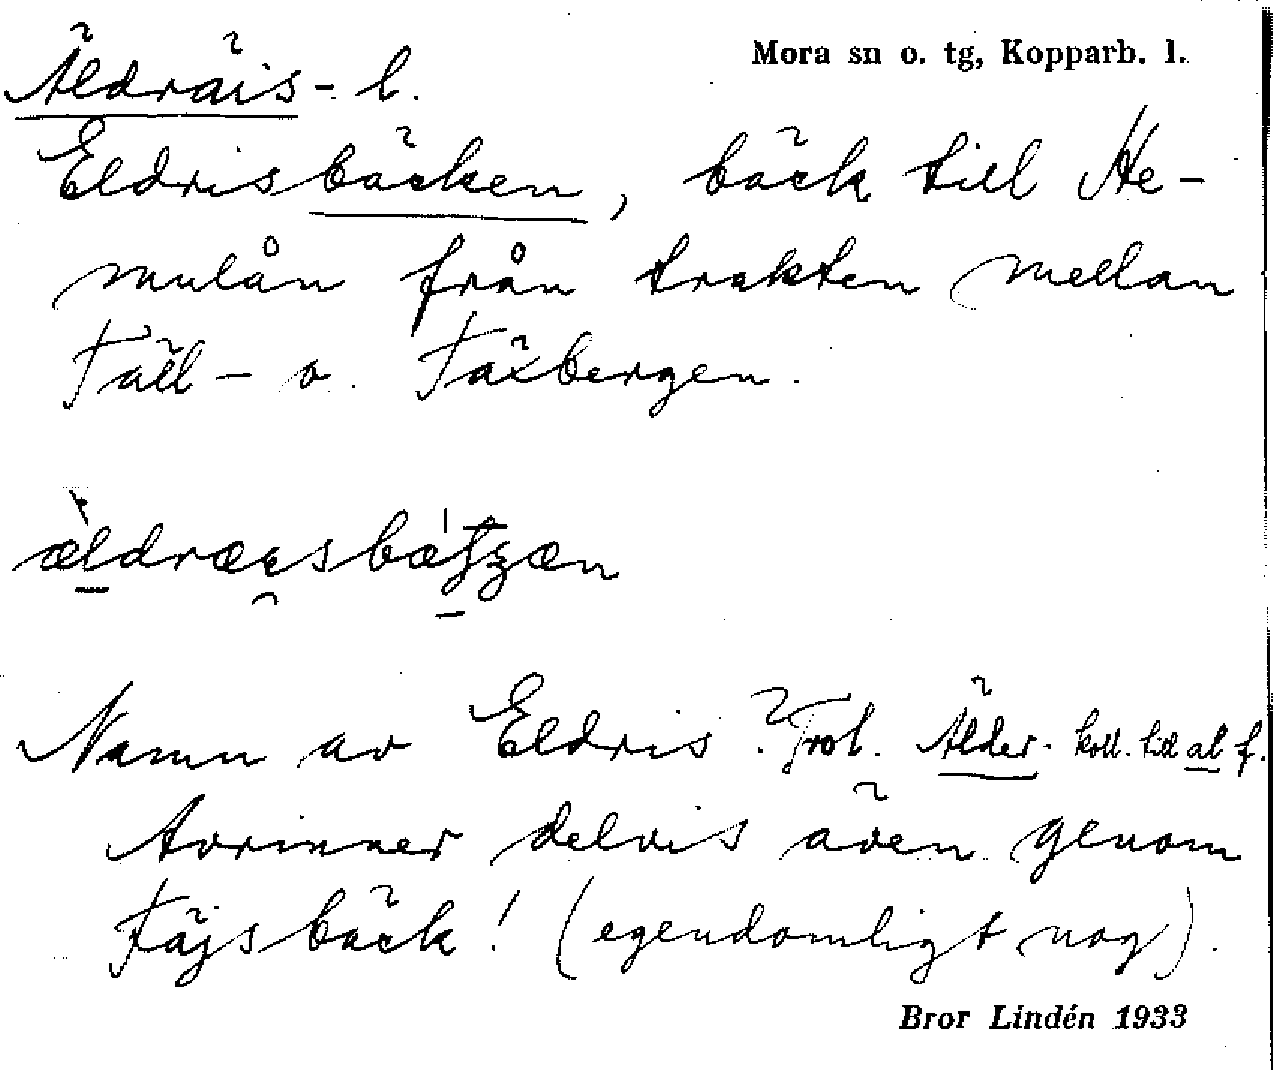 Mora sn o. tg, Kopparb. l.
Äldräis- b.
Eldrisbäcken, bäck till He-
mulån från trakten mellan
Fäll- o. Fäxbergen.
Namn av Eldris? Trol. Älder- koll. till al f.
Avrinner delvis även genom
Fäjsbäck! (egendomligt nog).
Bror Lindén 1933